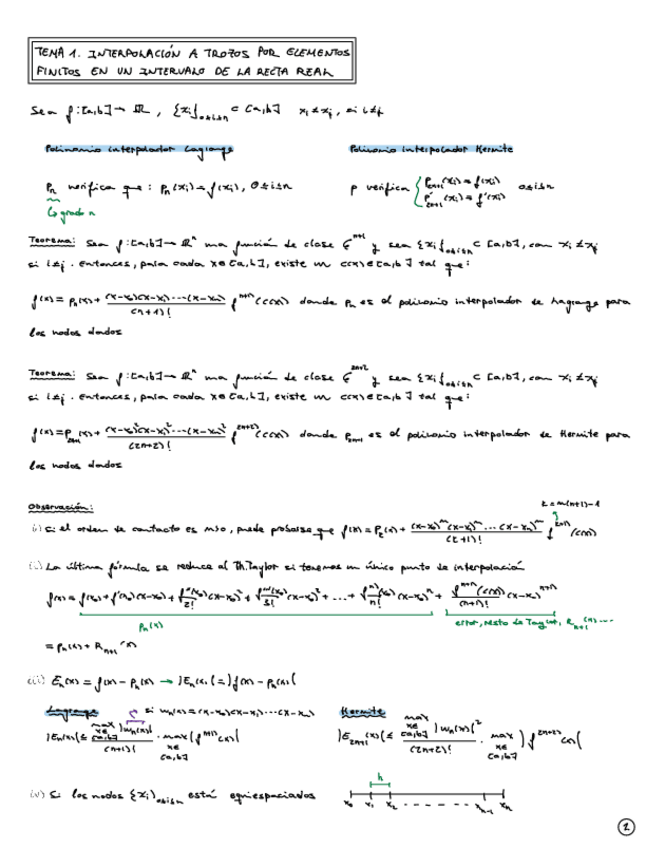 TEMA 1. INTERPOLACIÓN A TROZOS POR ELEMENTOS
FINITOS EN UN INTERVALO DE LA RECTA REAL
Sea f: [a,b] → ℝ, {x_i}_{0≤i≤n} ⊂ [a,b] x_i ≠ x_j, si i≠j
Polinomio interpolador Lagrange
Polinomio interpolador Hermite
P_n verifica que: P_n(x_i) = f(x_i), 0≤i≤n
↳ grado n
p verifica { P_{2n+1}(x_i) = f(x_i) 0≤i≤n
P'_{2n+1}(x_i) = f'(x_i)
Teorema: Sea f: [a,b] → ℝⁿ una función de clase C^{n+1} y sea {x_i}_{0≤i≤n} ⊂ [a,b], con x_i ≠ x_j
si i≠j. Entonces, para cada x∈[a,b], existe un c(x)∈[a,b] tal que:
f(x) = P_n(x) + (x-x_0)(x-x_1)···(x-x_n) / (n+1)! f^{n+1)}(c(x)) donde P_n es el polinomio interpolador de Lagrange para
los nodos dados
Teorema: Sea f: [a,b] → ℝⁿ una función de clase C^{2n+2} y sea {x_i}_{0≤i≤n} ⊂ [a,b], con x_i ≠ x_j
si i≠j. Entonces, para cada x∈[a,b], existe un c(x)∈[a,b] tal que:
f(x) = P_{2n+1}(x) + (x-x_0)²(x-x_1)²···(x-x_n)² / (2n+2)! f^{2n+2)}(c(x)) donde P_{2n+1} es el polinomio interpolador de Hermite para
los nodos dados
Observación:
z = m(n+1)-1
i) Si el orden de contacto es m>0, puede probarse que f(x) = P_z(x) + (x-x_0)^m (x-x_1)^m ··· (x-x_n)^m / (z+1)! f^{z+1)}(c(x))
ii) La última fórmula se reduce al Th. Taylor si tenemos un único punto de interpolación
f(x) = f(x_0) + f'(x_0)(x-x_0) + f''(x_0)/2! (x-x_0)² + f'''(x_0)/3! (x-x_0)³ + ... + f^{n)}(x_0)/n! (x-x_0)^n + f^{n+1)}(c(x))/(n+1)! (x-x_0)^{n+1}
P_n(x)
error, resto de Taylor, R_{n+1}(x)...
= P_n(x) + R_{n+1}(x)
iii) E_n(x) = f(x) - P_n(x) → |E_n(x)| = |f(x) - P_n(x)|
Lagrange
si w_n(x) = (x-x_0)(x-x_1)···(x-x_n)
Hermite
|E_n(x)| ≤ max x∈[a,b] |w_n(x)| / (n+1)! · max x∈[a,b] |f^{n+1)}(x)|
|E_{2n+1}(x)| ≤ max x∈[a,b] |w_n(x)|² / (2n+2)! · max x∈[a,b] |f^{2n+2)}(x)|
iv) Si los nodos {x_i}_{0≤i≤n} está equiespaciados
h
x_0 x_1 x_2 x_{n-1} x_n
1